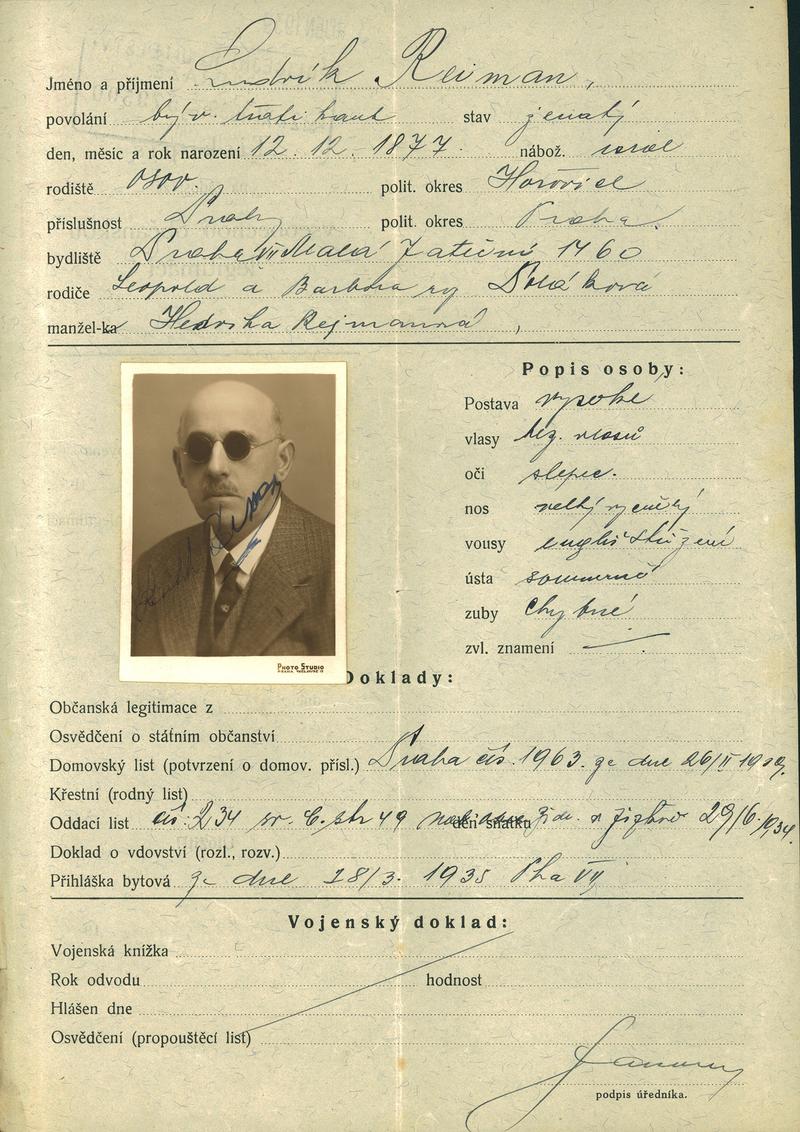 Jméno a příjmení Ludvík Reiman,
povolání býv. stav ženatý
den, měsíc a rok narození 12. 12. 1877. nábož. israel
rodiště Osov. polit. okres Hořovice
příslušnost Praha polit. okres Praha.
bydliště Praha VII Malá 1460
rodiče Leopold a Barbora Poláková
manžel-ka Hedvika Rejmanová,
Popis osoby:
Postava vysoké
vlasy bez vlasů
oči slepec.
nos velký
vousy
ústa souměrné
zuby chybné
zvl. znamení
PHOTO STUDIO
Doklady:
Občanská legitimace z
Osvědčení o státním občanství
Domovský list (potvrzení o domov. přísl.) Praha čís. 1963. ze dne 26/II
Křestní (rodný list)
Oddací list čís. 234 str 49 den sňatku žid. 29/6. 1934.
Doklad o vdovství (rozl., rozv.)
Přihláška bytová ze dne 28/3. 1935 Pha VII
Vojenský doklad:
Vojenská knížka
Rok odvodu hodnost
Hlášen dne
Osvědčení (propouštěcí list)
podpis úředníka.